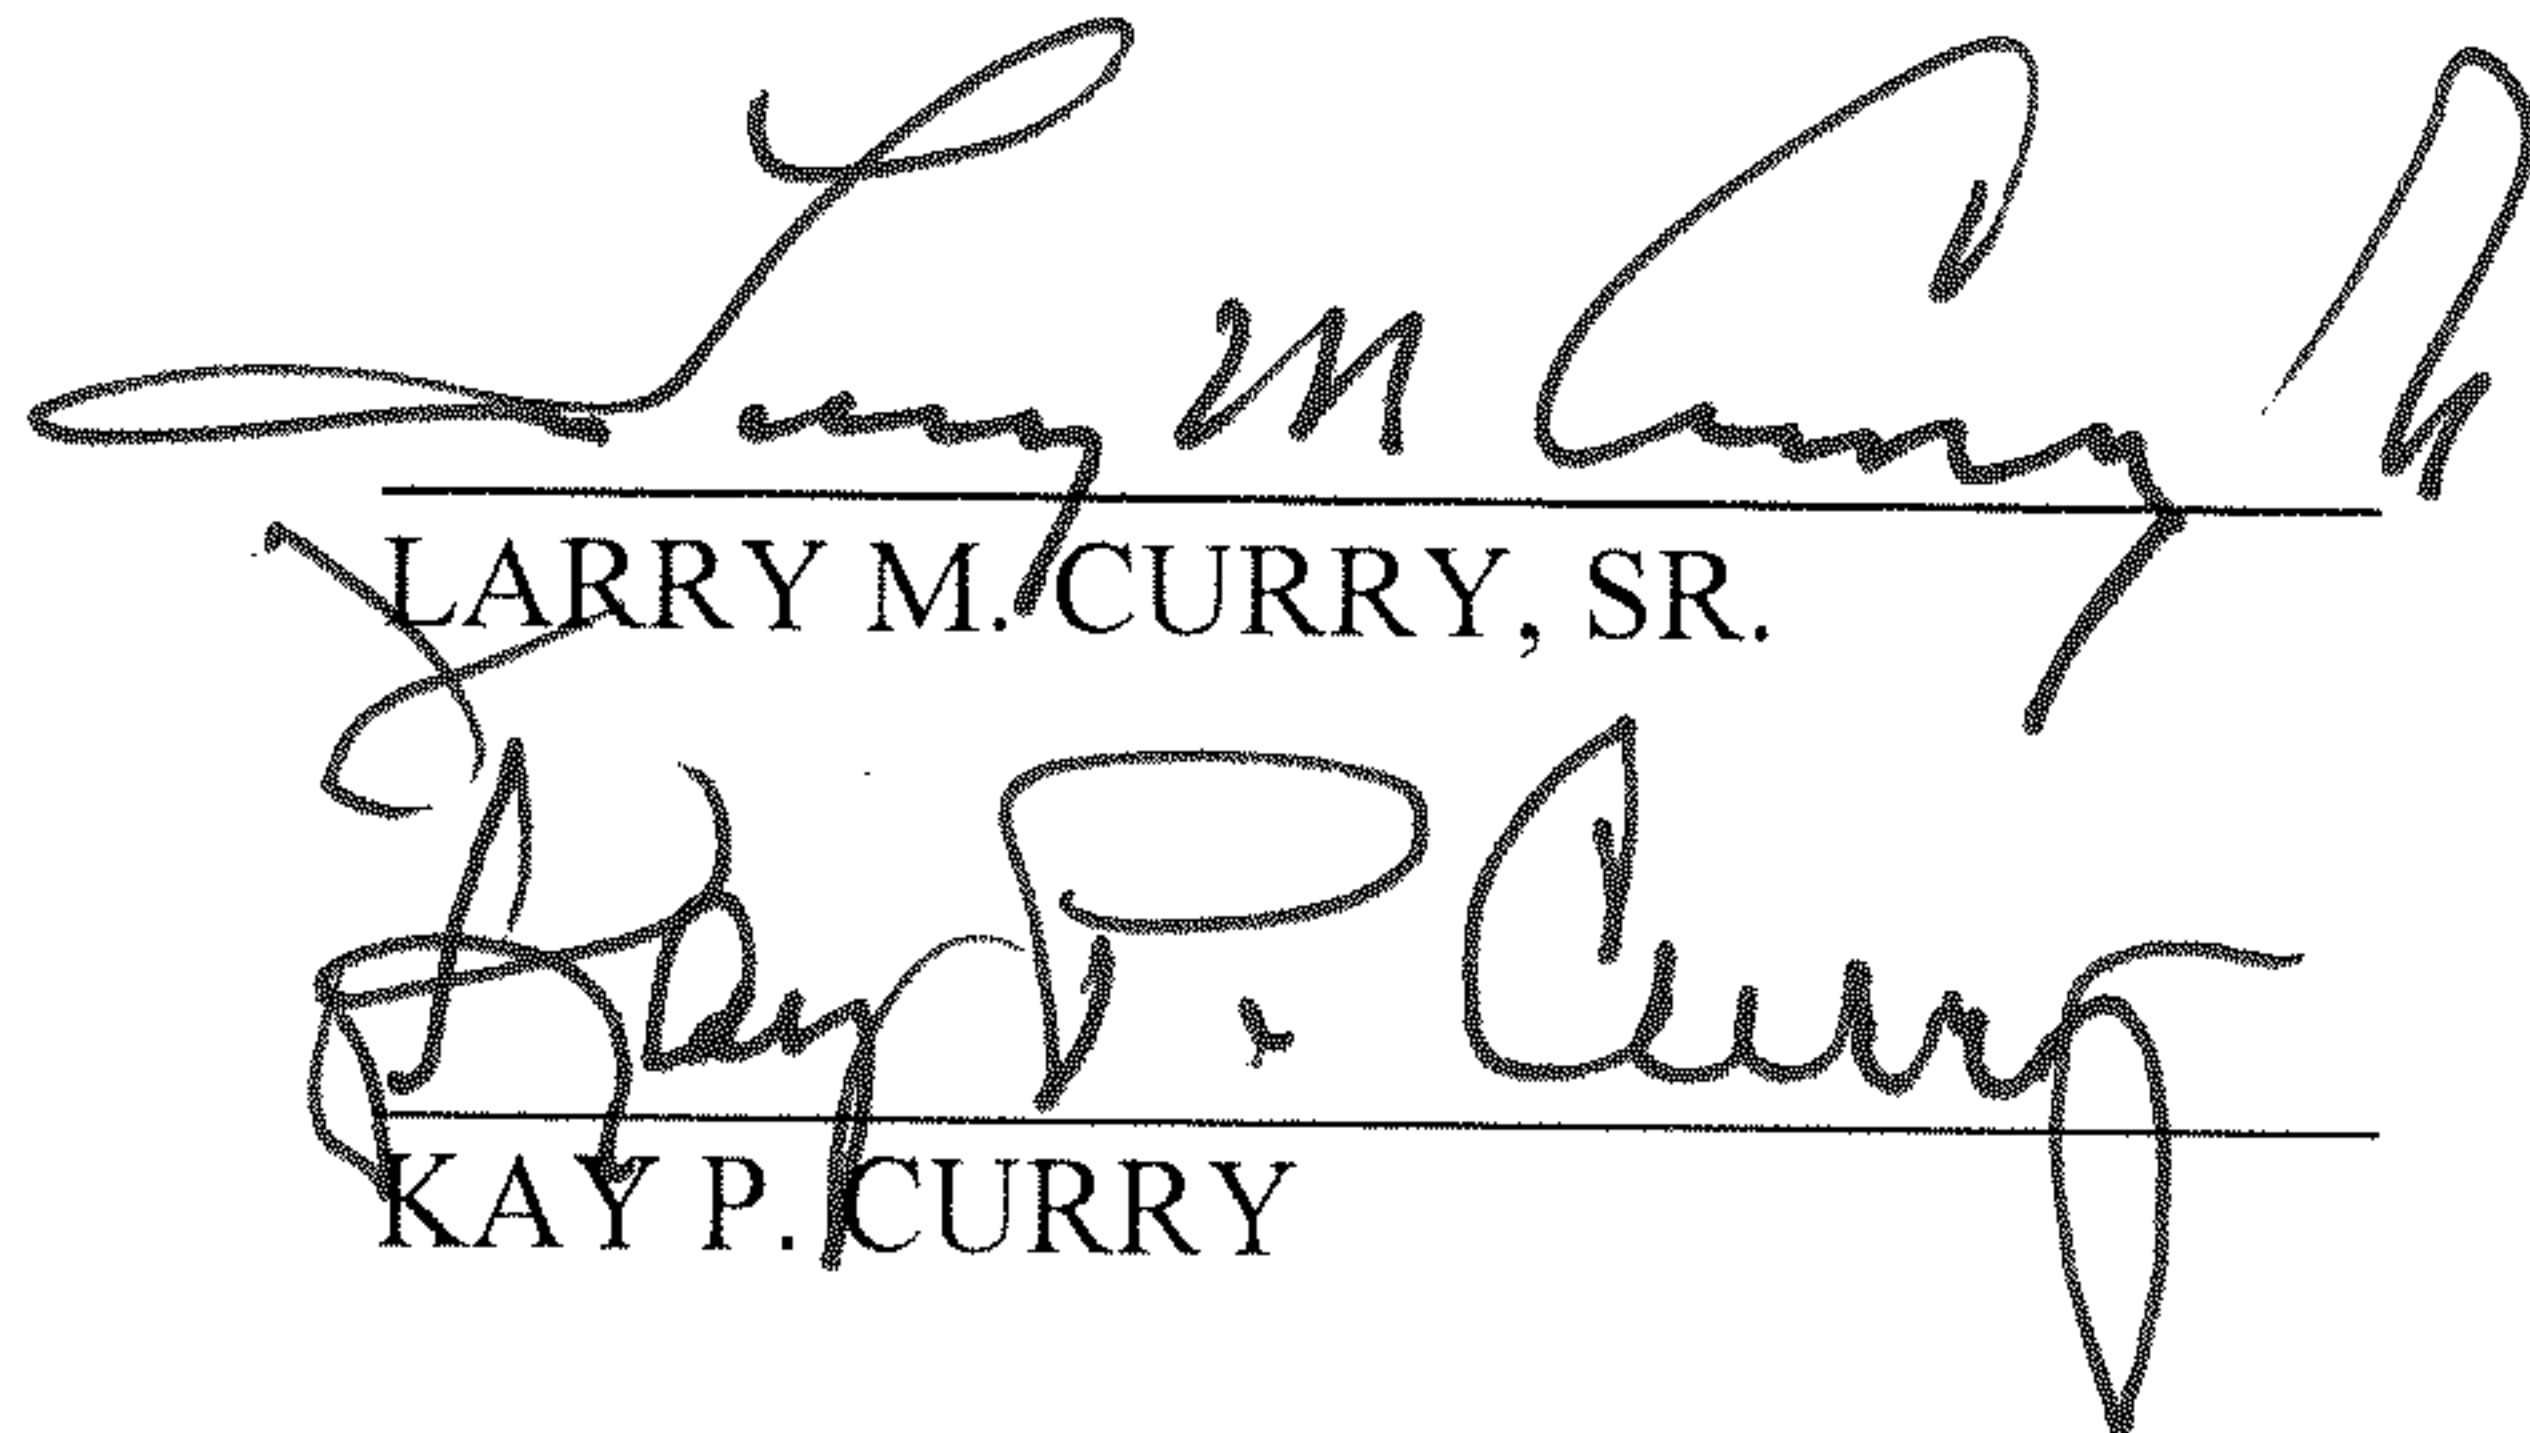 Larry M Curry Sr
LARRY M. CURRY, SR.
Kay P. Curry
KAY P. CURRY